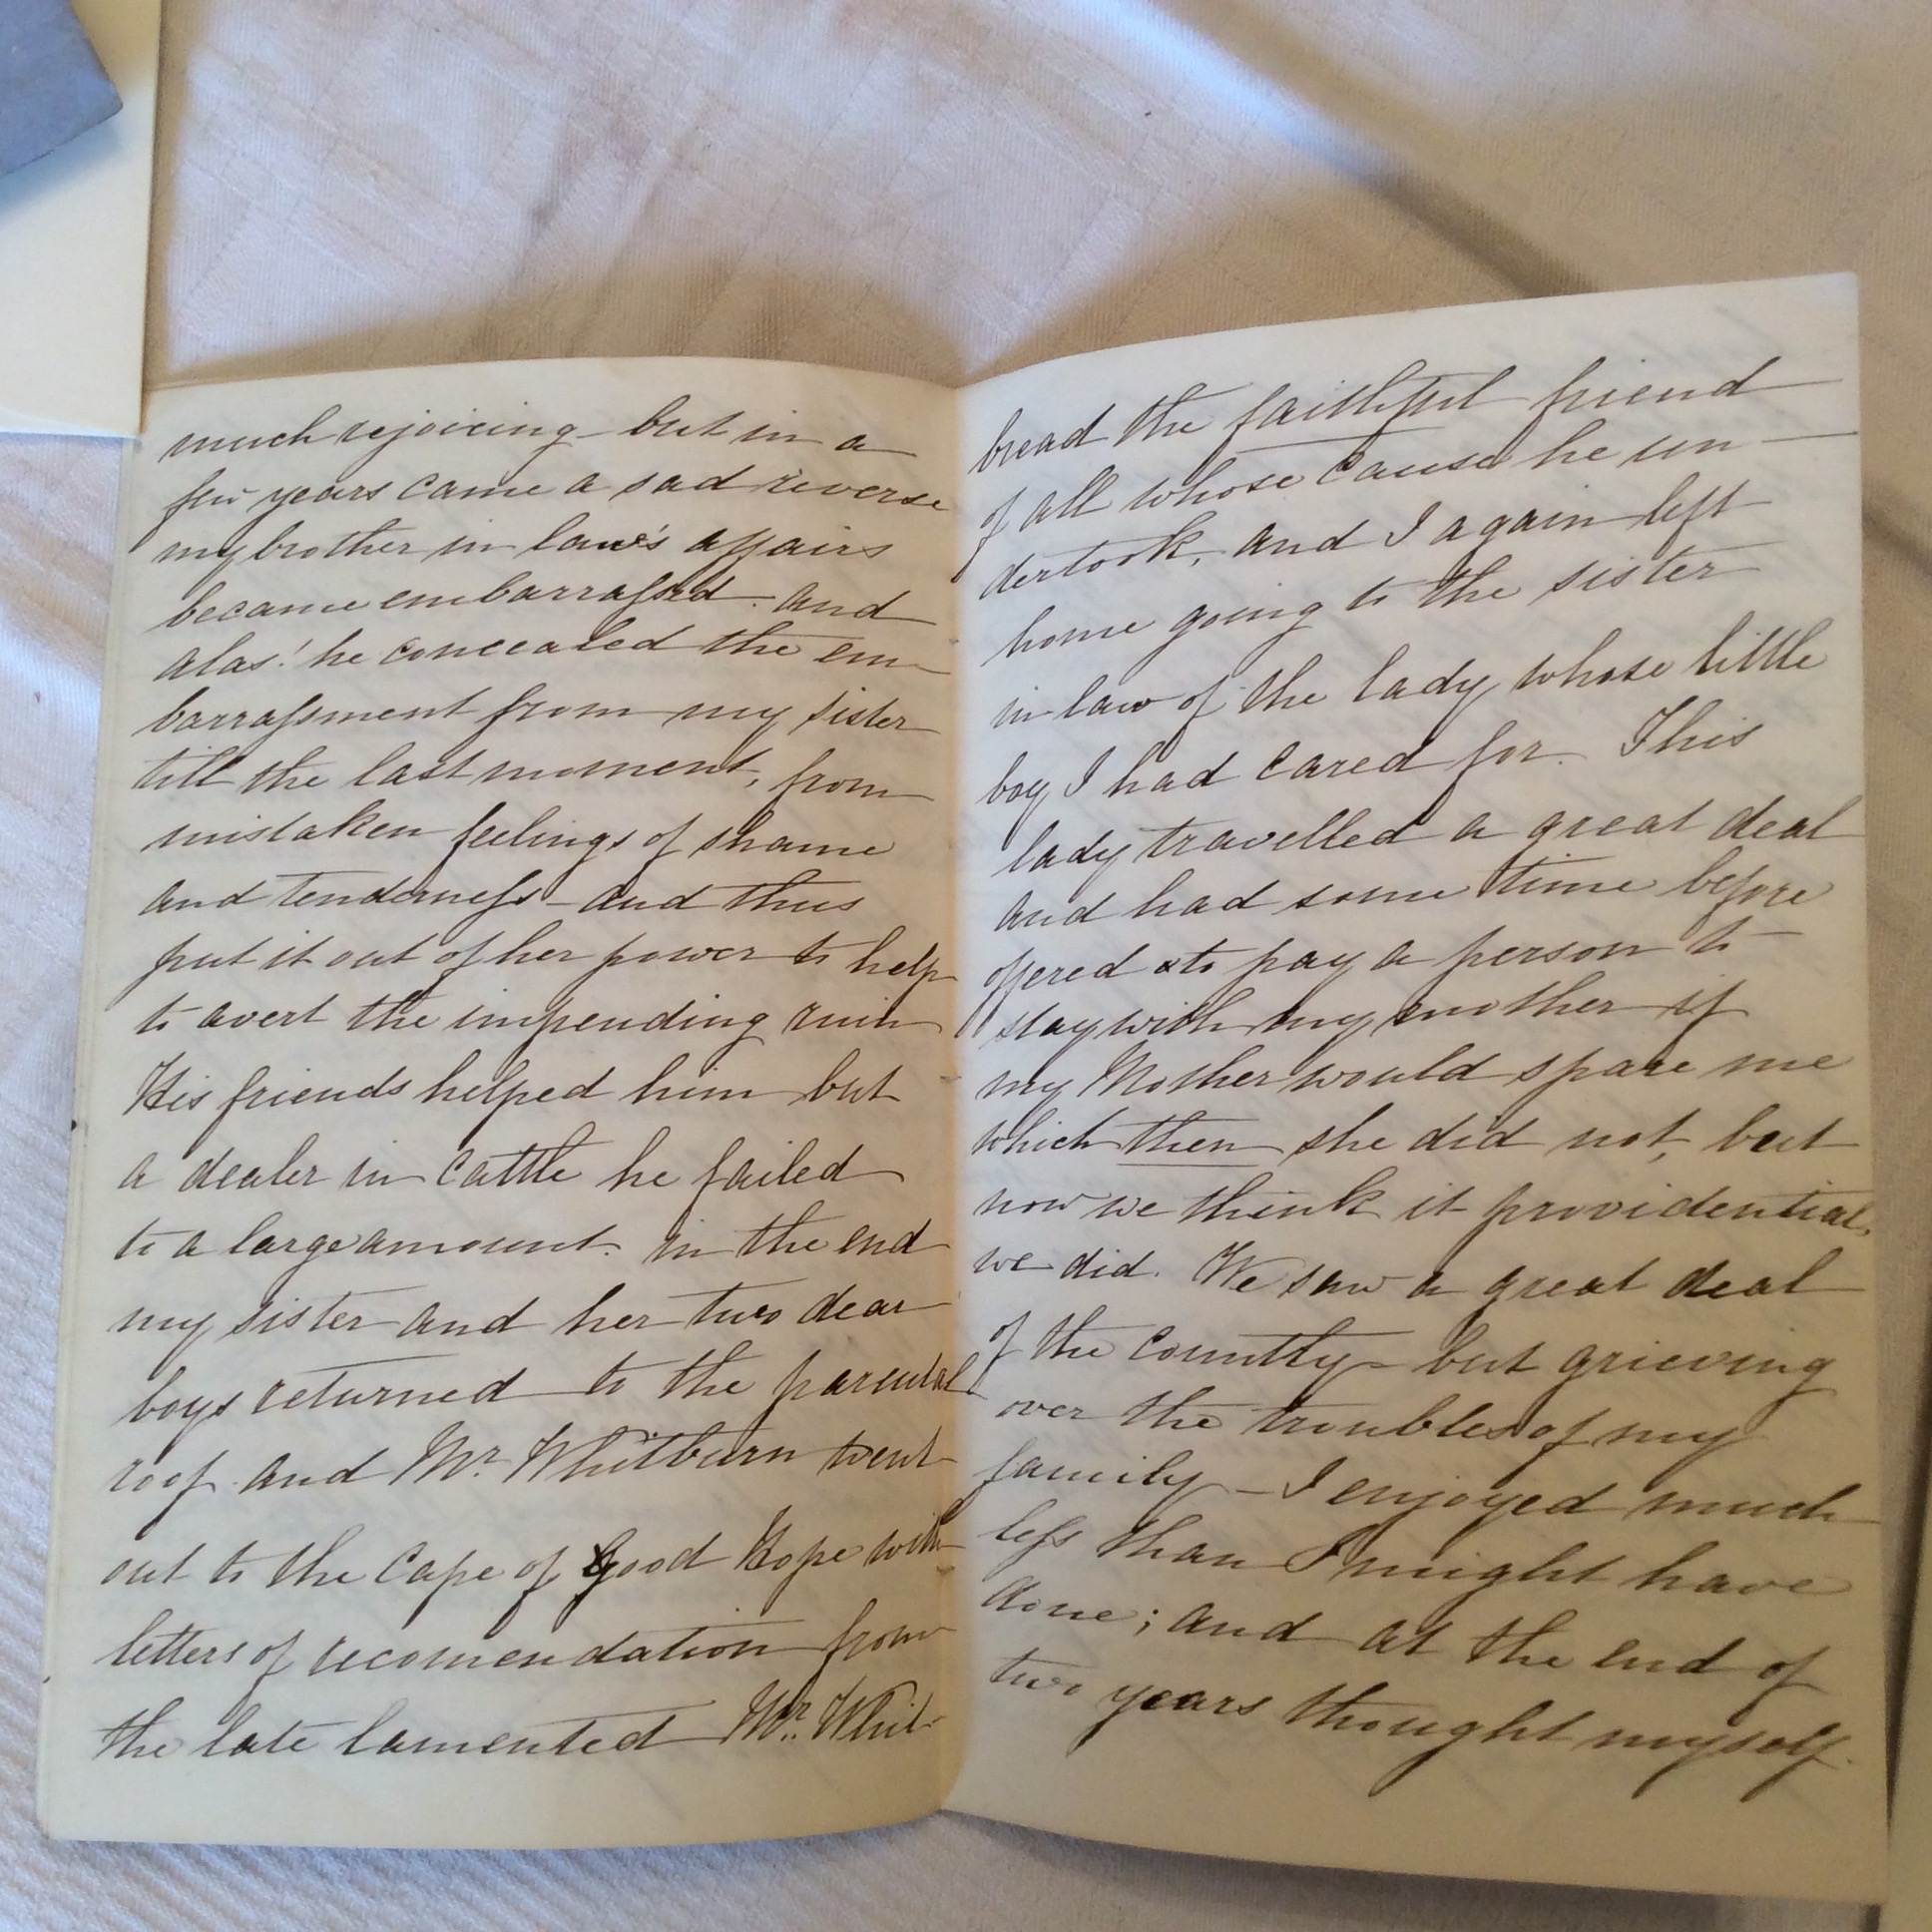 much rejoicing - but in a
few years came a sad reverse
my brother in law's affairs
became embarrassed - and
alas! he concealed the em-
barrassment from my sister
till the last moment, from
mistaken feelings of shame
and tenderness - and thus
put it out of her power to help
to avert the impending ruin
His friends helped him but
a dealer in cattle he failed
to a large amount. in the end
my sister and her two dear
boys returned to the parental
roof and Mr. Whitburn went
out to the Cape of good Hope with
letters of recomendation from
the late lamented Mr. Whit-
bread the faithful friend
of all whose cause he un-
dertook, and I again left
home going to the sister
in law of the lady whose little
boy I had cared for. This
lady travelled a great deal
and had some time before
offered to pay a person to
stay with my mother if
my Mother would spare me
which then she did not, but
now we think it providential
we did. We saw a great deal
of the country - but grieving
over the troubles of my
family - I enjoyed much
less than I might have
done; and at the end of
two years thought myself